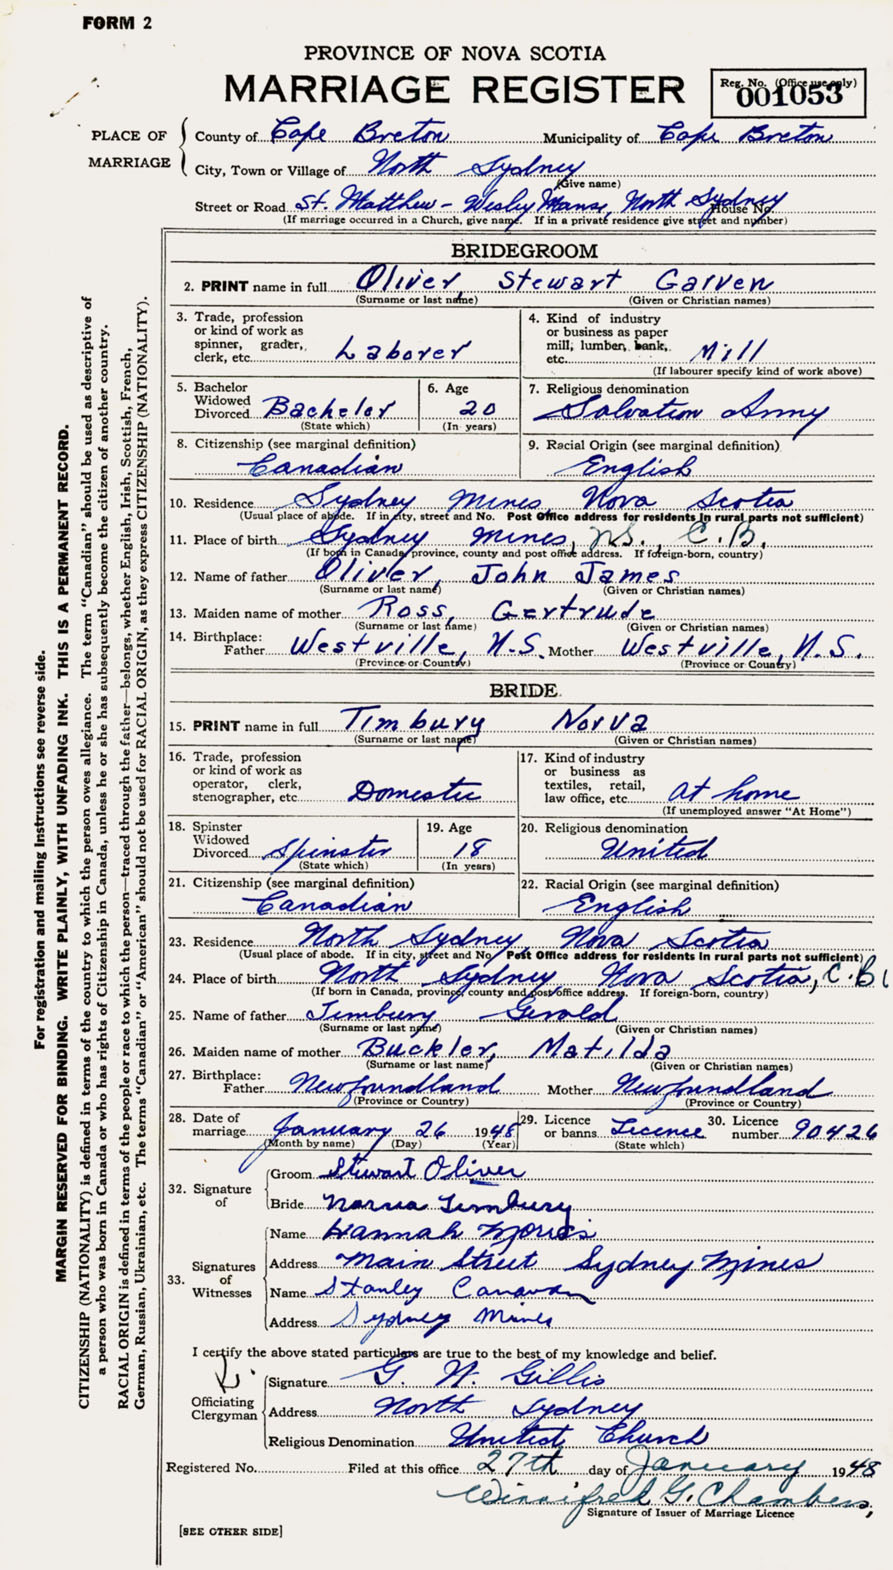 FORM 2
PROVINCE OF NOVA SCOTIA
MARRIAGE REGISTER
Reg. No. (Office use only)
001053
PLACE OF MARRIAGE
County of Cape Breton Municipality of Cape Breton
City, Town or Village of North Sydney
(Give name)
Street or Road St. Matthew - Wesley Manse, North Sydney House No.
(If marriage occurred in a Church, give name. If in a private residence give street and number)
BRIDEGROOM
2. PRINT name in full Oliver Stewart Garven
(Surname or last name) (Given or Christian names)
3. Trade, profession or kind of work as spinner, grader, clerk, etc. Laborer
4. Kind of industry or business as paper mill; lumber, bank, etc. Mill
(If labourer specify kind of work above)
5. Bachelor Widowed Divorced Bachelor
(State which)
6. Age 20
(In years)
7. Religious denomination Salvation Army
8. Citizenship (see marginal definition) Canadian
9. Racial Origin (see marginal definition) English
10. Residence Sydney Mines Nova Scotia
(Usual place of abode. If in city, street and No. Post Office address for residents in rural parts not sufficient)
11. Place of birth Sydney Mines, N.S., C.B.
(If born in Canada, province, county and post office address. If foreign-born, country)
12. Name of father Oliver, John James
(Surname or last name) (Given or Christian names)
13. Maiden name of mother Ross, Gertrude
(Surname or last name) (Given or Christian names)
14. Birthplace: Father Westville, N.S. Mother Westville, N.S.
(Province or Country) (Province or Country)
BRIDE
15. PRINT name in full Timbury Norva
(Surname or last name) (Given or Christian names)
16. Trade, profession or kind of work as operator, clerk, stenographer, etc. Domestic
17. Kind of industry or business as textiles, retail, law office, etc. at home
(If unemployed answer "At Home")
18. Spinster Widowed Divorced Spinster
(State which)
19. Age 18
(In years)
20. Religious denomination United
21. Citizenship (see marginal definition) Canadian
22. Racial Origin (see marginal definition) English
23. Residence North Sydney Nova Scotia
(Usual place of abode. If in city, street and No. Post Office address for residents in rural parts not sufficient)
24. Place of birth North Sydney Nova Scotia, C.B.
(If born in Canada, province, county and post office address. If foreign-born, country)
25. Name of father Timbury Gerald
(Surname or last name) (Given or Christian names)
26. Maiden name of mother Buckler, Matilda
(Surname or last name) (Given or Christian names)
27. Birthplace: Father Newfoundland Mother Newfoundland
(Province or Country) (Province or Country)
28. Date of marriage January 26 1948
(Month by name) (Day) (Year)
29. Licence or banns Licence
(State which)
30. Licence number 90426
32. Signature of
Groom Stewart Oliver
Bride Norva Timbury
33. Signatures of Witnesses
Name Hannah Morris
Address Main Street Sydney Mines
Name Stanley
Address Sydney Mines
I certify the above stated particulars are true to the best of my knowledge and belief.
Officiating Clergyman
Signature G. W. Gillis
Address North Sydney
Religious Denomination United Church
Registered No. Filed at this office 27th day of January 1948
Winnifred G. Chambers,
Signature of Issuer of Marriage Licence
[SEE OTHER SIDE]
For registration and mailing instructions see reverse side.
MARGIN RESERVED FOR BINDING. WRITE PLAINLY, WITH UNFADING INK. THIS IS A PERMANENT RECORD.
CITIZENSHIP (NATIONALITY) is defined in terms of the country to which the person owes allegiance. The term "Canadian" should be used as descriptive of
a person who was born in Canada or who has rights of Citizenship in Canada, unless he or she has subsequently become the citizen of another country.
RACIAL ORIGIN is defined in terms of the people or race to which the person—traced through the father—belongs, whether English, Irish, Scottish, French,
German, Russian, Ukrainian, etc. The terms "Canadian" or "American" should not be used for RACIAL ORIGIN, as they express CITIZENSHIP (NATIONALITY).